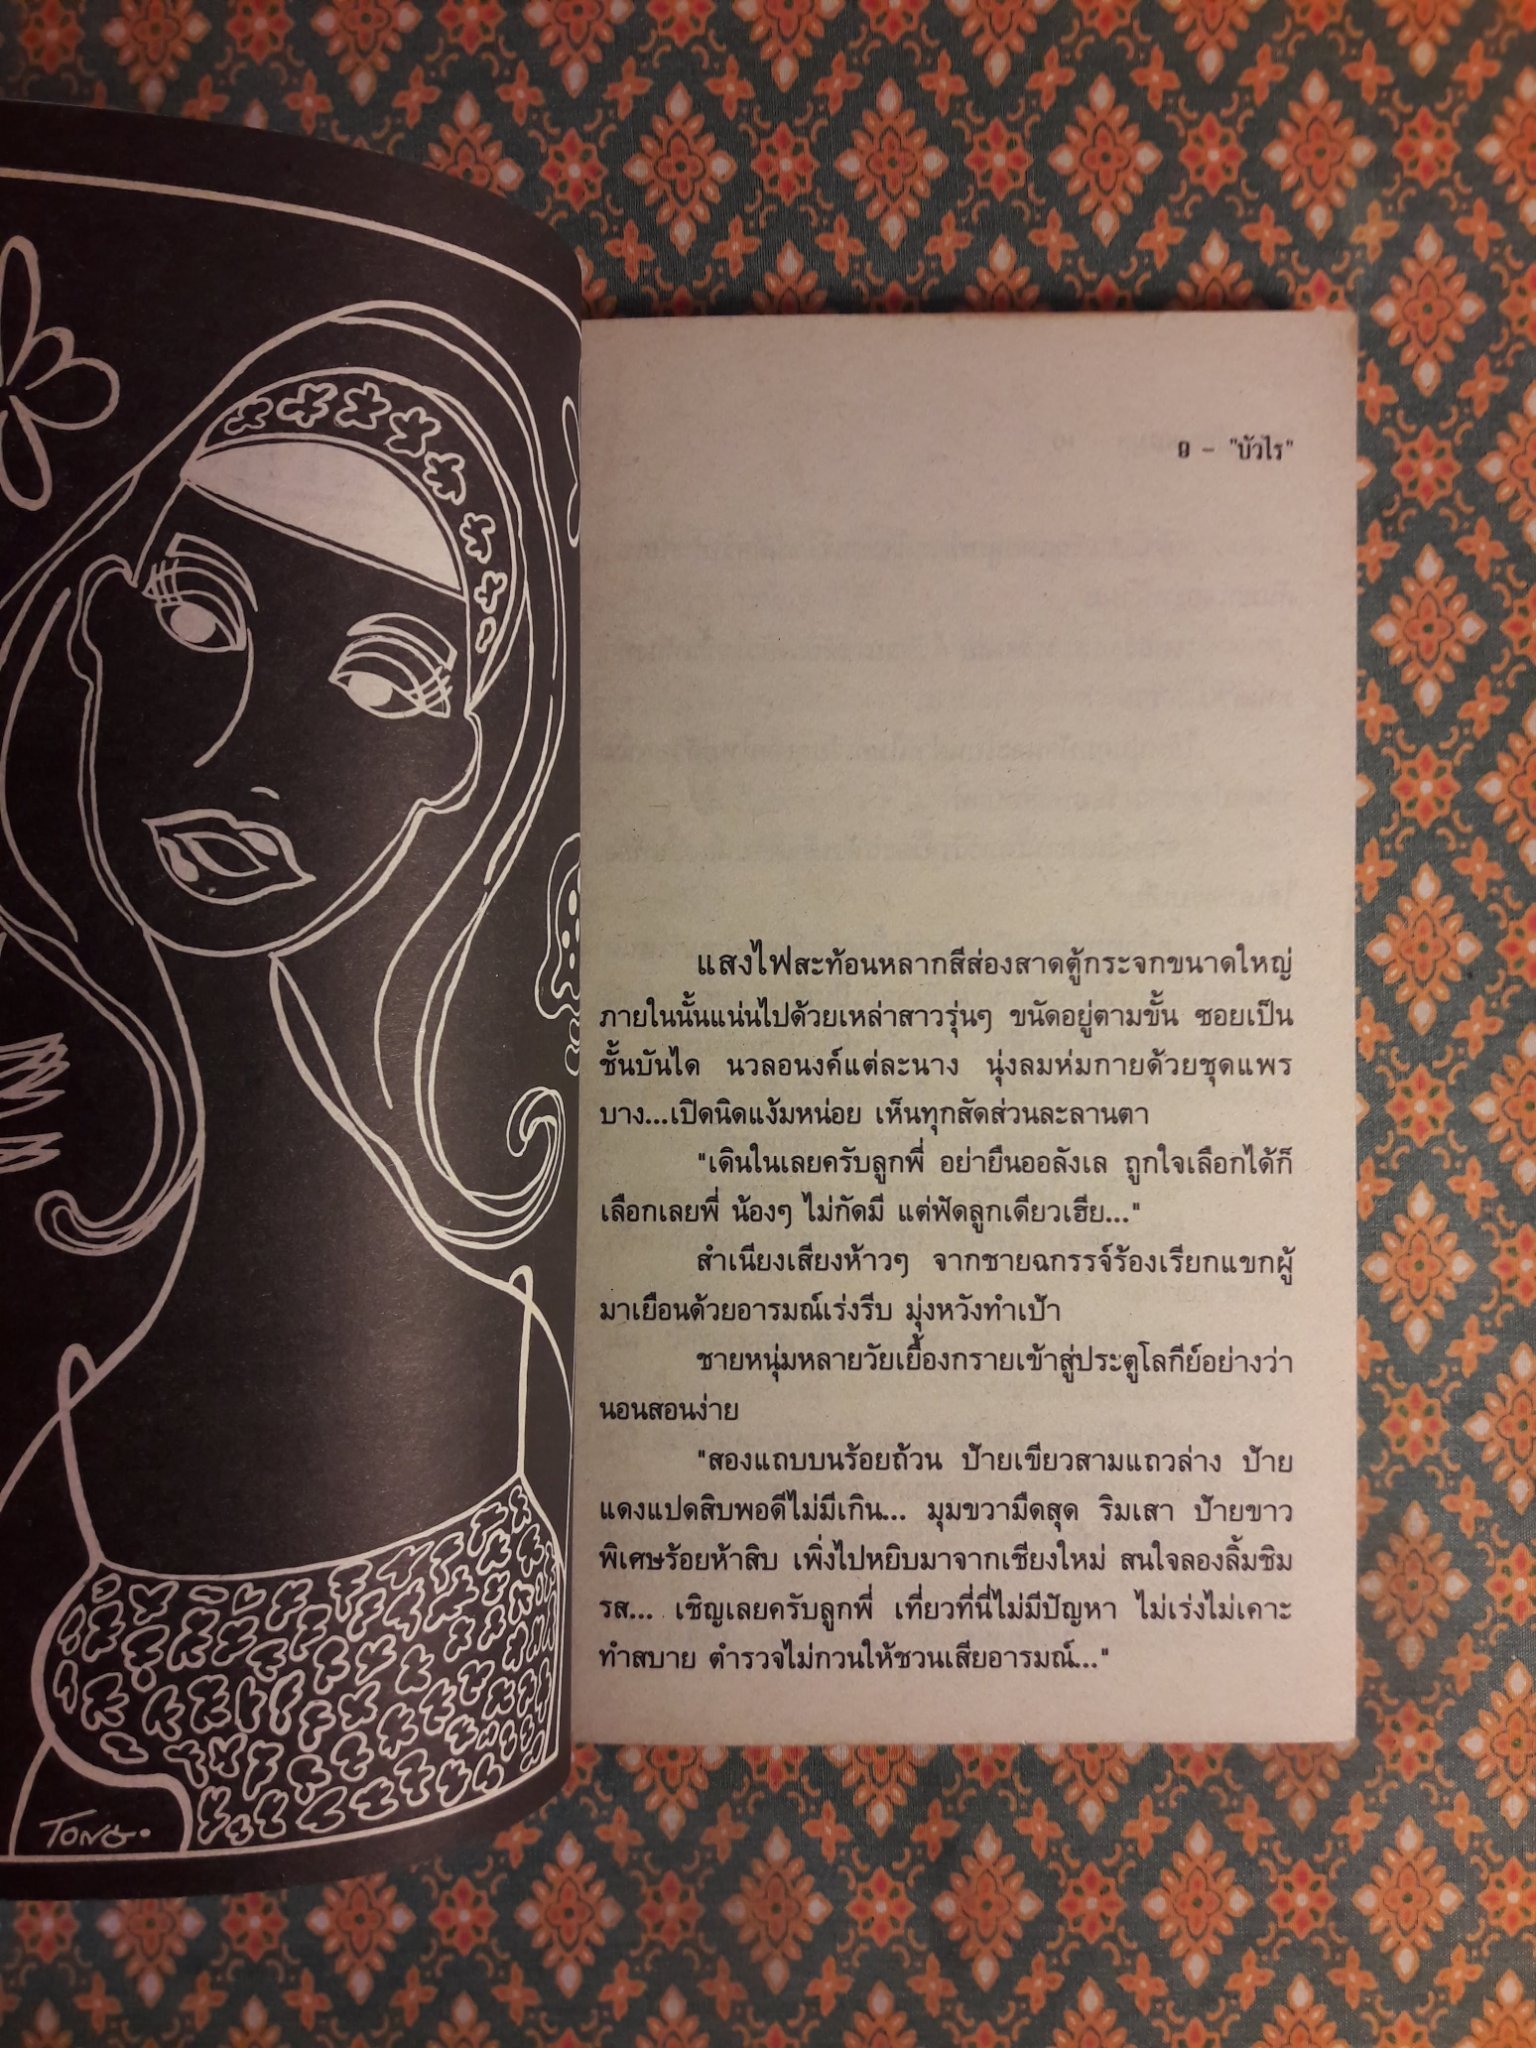 ๑ - "บัวไร"
แสงไฟสะท้อนหลากสีส่องสาดตู้กระจกขนาดใหญ่
ภายในนั้นแน่นไปด้วยเหล่าสาวรุ่นๆ ขนัดอยู่ตามขั้น ซอยเป็น
ชั้นบันได นวลอนงค์แต่ละนาง นุ่งลมห่มกายด้วยชุดแพร
บาง...เปิดนิดแง้มหน่อย เห็นทุกสัดส่วนละลานตา
"เดินในเลยครับลูกพี่ อย่ายืนออลังเล ถูกใจเลือกได้ก็
เลือกเลยพี่ น้องๆ ไม่กัดมี แต่ฟัดลูกเดียวเฮีย..."
สำเนียงเสียงห้าวๆ จากชายฉกรรจ์ร้องเรียกแขกผู้
มาเยือนด้วยอารมณ์เร่งรีบ มุ่งหวังทำเป้า
ชายหนุ่มหลายวัยเยื้องกรายเข้าสู่ประตูโลกีย์อย่างว่า
นอนสอนง่าย
"สองแถบบนร้อยถ้วน ป้ายเขียวสามแถวล่าง ป้าย
แดงแปดสิบพอดีไม่มีเกิน... มุมขวามืดสุด ริมเสา ป้ายขาว
พิเศษร้อยห้าสิบ เพิ่งไปหยิบมาจากเชียงใหม่ สนใจลองลิ้มชิม
รส... เชิญเลยครับลูกพี่ เที่ยวที่นี่ไม่มีปัญหา ไม่เร่งไม่เคาะ
ทำสบาย ตำรวจไม่กวนให้ชวนเสียอารมณ์..."
TONG.